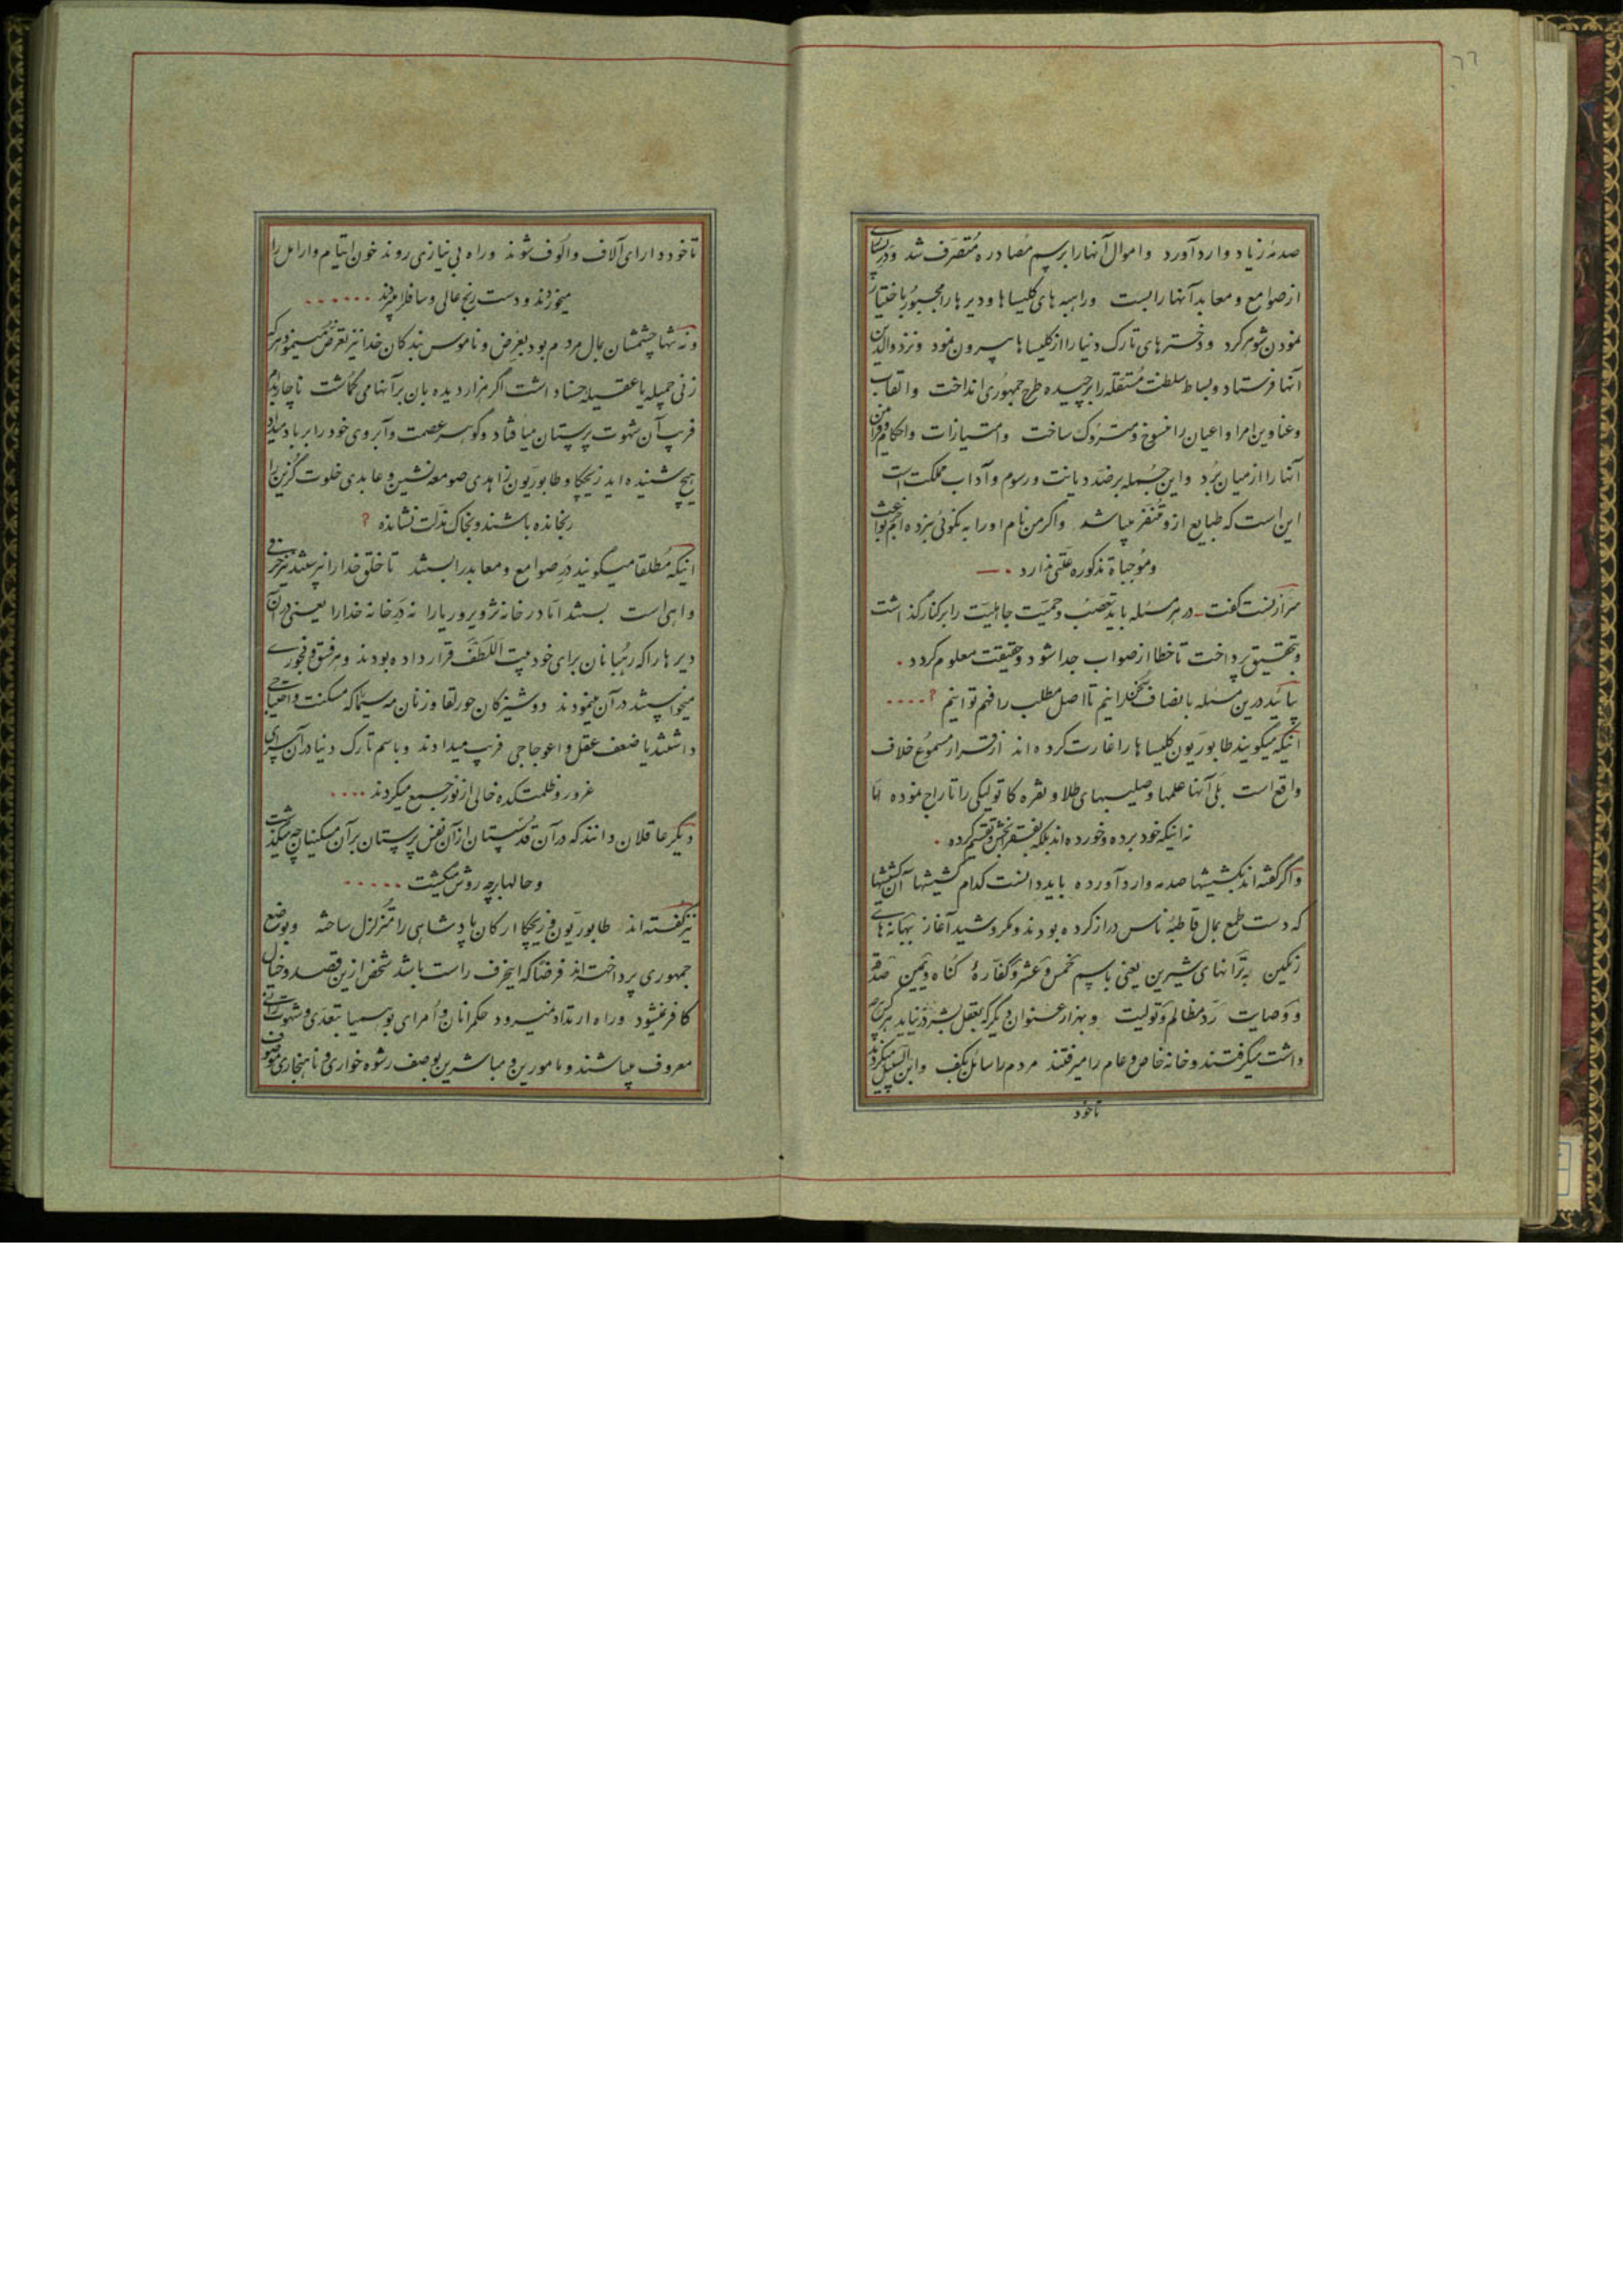 صدمهٔ زیاد وارد آورد و اموال آنها را برسم مُصادره مُتصرّف شد و در بسیاری
از صوامع و معابد آنها را بست و راهبه های کلیساها و دیرها را مجبور باختیار
نمودن شوهر کرد و دخترهای تارک دنیا را از کلیساها بیرون نمود و نزد والدین
آنها فرستاد و بساط سلطنت مُستقله را برچیده طرح جمهوری انداخت و القاب
و عناوین امرا و اعیان را منسوخ و متروک ساخت و امتیازات و احکام و فرامین
آنها را از میان بُرد و این جُمله برضد دیانت و رسوم و آداب مملکت است
این است که طبایع ازو متنفّر میباشد و اگر من نام او را به نکوئی نبرده ام بجز بواعث
و مُوجباة مذکوره علّتی ندارد ۰ —
سرآرنست گفت - در هر مسئله باید تعصّب و حمیّت جاهلیّت را بر کنار گذاشت
و بتحقیق پرداخت تا خطا از صواب جدا شود و حقیقت معلوم گردد ۰
بیائید درین مسئله بانصاف سخن رانیم تا اصل مطلب را فهم توانیم ؟ ۰۰۰۰
اینکه میگویند طابوریّون کلیساها را غارت کرده اند از قرار مسموع خلاف
واقع است بلی آنها علمها و صلیبهای طلا و نقره کاتولیکی را تاراج نموده امّا
نه اینکه خود برده و خورده اند بلکه بفقرا بخش و تقسیم کرده ۰
و اگر گفته اند بکشیشها صدمه وارد آورده باید دانست کدام کشیشها آن کشیشها
که دست طمع بمال قاطبهٔ ناس دراز کرده بودند و مکر و شید آغاز ببهانه های
رنگین به ترّانهای شیرین یعنی باسم خمس و عشر و کفّارهٔ گناه و یمین صدقه
و وصایت ردّ مظالم و تولیت و بهزار عنوان دیگر که بعقل بشر در نیاید هر کس هرچه
داشت میگرفتند و خانهٔ خاص و عام را میرفتند مردم را سائل بکف و ابن السبیل میکردند
تا خود
تا خود دارای آلاف و الوف شوند و راه بی نیازی روند خون ایتام و ارامل را
میخوردند و دست رنج عالی و سافل را میبردند ۰۰۰۰۰۰
و نه تنها چشمشان بمال مردم بود بعرض و ناموس بندگان خدا نیز تعرّض مینمود هرکه
زنی جمیله یا عقیله حسناء داشت اگر هزار دیده بان بر آنها می گماشت ناچار بدام
فریب آن شهوت پرستان میافتاد و گوهر عصمت و آبروی خود را بر باد میداد
هیچ شنیده اید زیچکا و طابوریّون زاهدی صومعه نشین و عابدی خلوت گزین را
رنجانده باشند و بخاک مذلت نشانده ؟
اینکه مُطلقا میگویند درِ صوامع و معابد را بستند تا خلق خدا را نپرستند نیز حرفی
واهی است بستند امّا در خانهٔ تزویر و ریا را نه درِ خانهٔ خدا را یعنی در آن
دیرها را که رُهبانان برای خود بیت اللّطف قرار داده بودند و هر فسق و فجوری
میخواستند در آن مینمودند دوشیزگان حور لقا و زنان مه سیما که مسکنت و احتیاجی
داشتند یا ضعف عقل و اعوجاجی فریب میدادند و باسم تارک دنیا در آن سرای
غرور و ظلمت کده خالی از نور جمع میکردند ۰۰۰۰
دیگر عاقلان دانند که در آن قدسستان از آن نفس پرستان بر آن مسکینان چه میگذشت
و حالها بر چه روش میگشت ۰۰۰۰۰
نیز گفته اند طابوریّون و زیچکا ارکان پادشاهی را متزلزل ساخته و بوضع
جمهوری پرداخته اند فرضا که اینحرف راست باشد شخص ازین قصد و خیال
کافر نمیشود و راه ارتداد نمیرود حکمرانان و اُمرای بوهیمیا بتعدّی و شهوت رانی
معروف میباشند و مامورین و مباشرین بوصف رشوه خواری و ناهنجاری موصوف